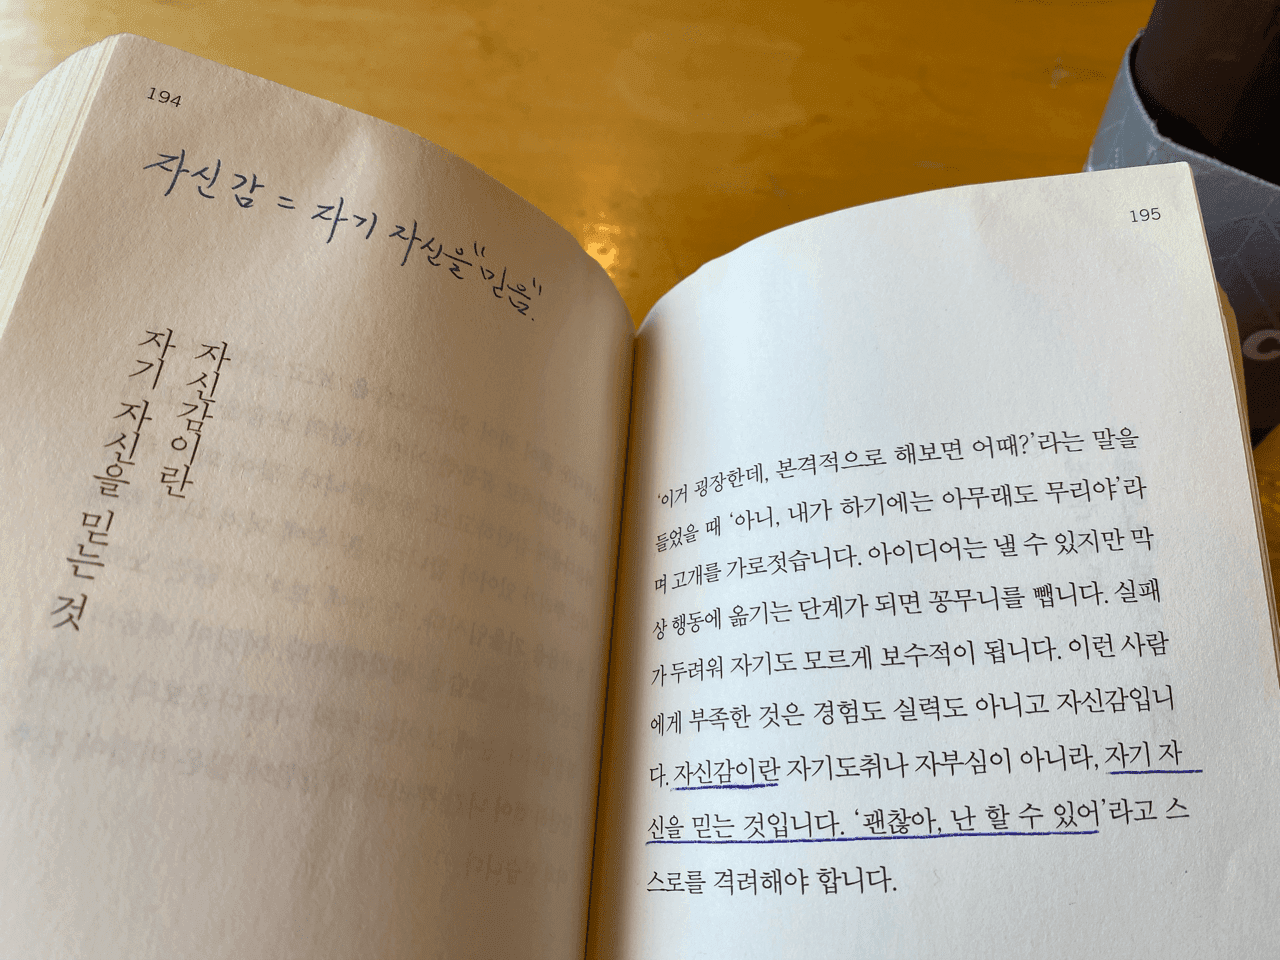 194
자신감 = 자기 자신을 "믿음".
자신감이란
자기 자신을 믿는 것
195
'이거 굉장한데, 본격적으로 해보면 어때?'라는 말을
들었을 때 '아니, 내가 하기에는 아무래도 무리야'라
며 고개를 가로젓습니다. 아이디어는 낼 수 있지만 막
상 행동에 옮기는 단계가 되면 꽁무니를 뺍니다. 실패
가 두려워 자기도 모르게 보수적이 됩니다. 이런 사람
에게 부족한 것은 경험도 실력도 아니고 자신감입니
다. 자신감이란 자기도취나 자부심이 아니라, 자기 자
신을 믿는 것입니다. '괜찮아, 난 할 수 있어'라고 스
스로를 격려해야 합니다.